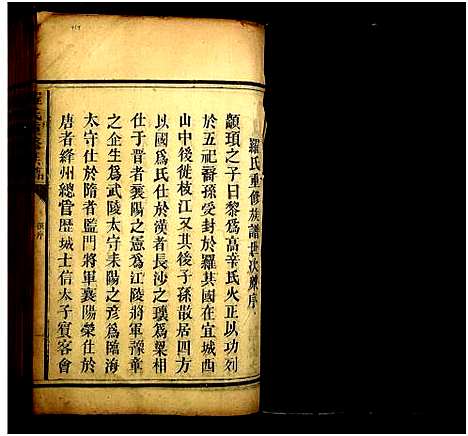 羅氏重修族譜世次序
顓頊之子曰黎為高辛氏火正以功列
於五祀裔孫受封於羅其國在宜城西
山中後徙枝江又其後子孫散居四方
以國為氏仕於漢者長沙之瓌為梁相
仕于晋者襄陽之憲為江陵將軍豫章
之企生為武陵太守耒陽之彥為臨海
太守仕於隋者監門將軍襄陽榮仕於
唐者絳州總管歷城士信太子賓客會